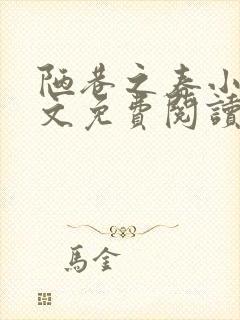 陋巷之春小
文免費閱讀
馬金